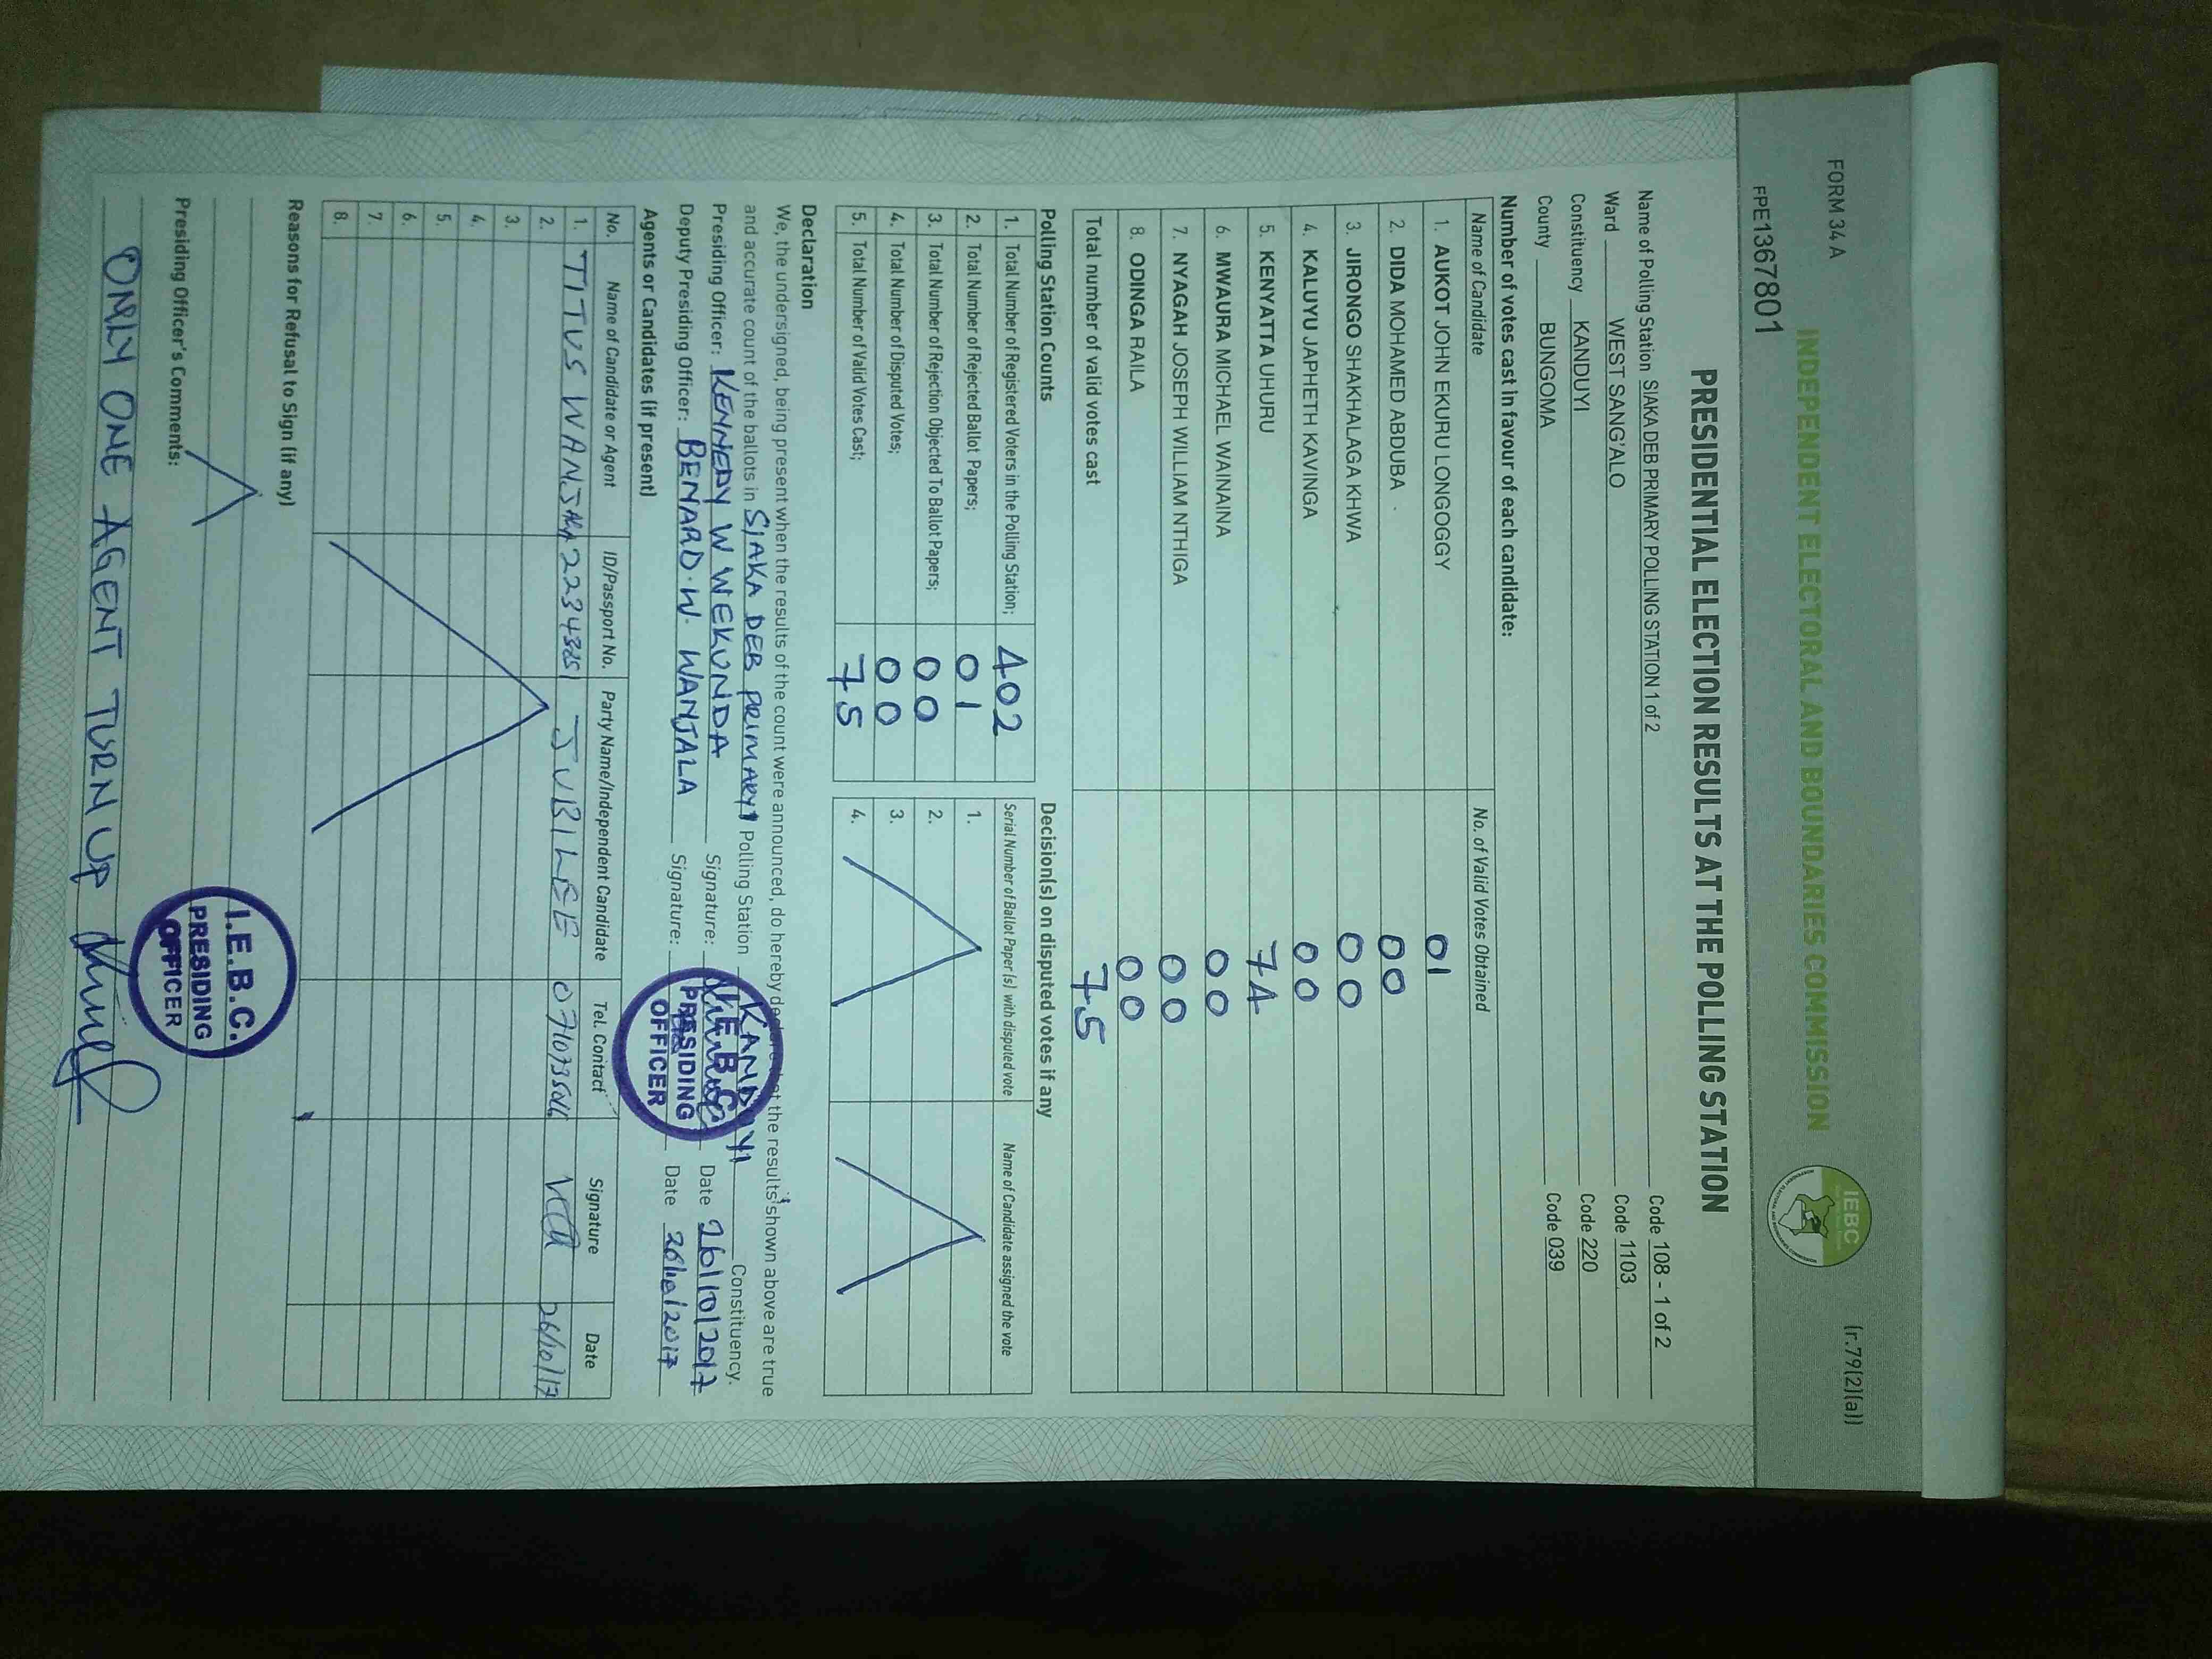 FORM 34 A
(r.79(2)(a))
FPE1367801
INDEPENDENT ELECTORAL AND BOUNDARIES COMMISSION
IEBC
PRESIDENTIAL ELECTION RESULTS AT THE POLLING STATION
Name of Polling Station SIAKA DEB PRIMARY POLLING STATION 1 of 2 Code 108 - 1 of 2
Ward WEST SANG'ALO Code 1103
Constituency KANDUYI Code 220
County BUNGOMA Code 039
Number of votes cast in favour of each candidate:
Name of Candidate No. of Valid Votes Obtained
1. AUKOT JOHN EKURU LONGOGGY 01
2. DIDA MOHAMED ABDUBA 00
3. JIRONGO SHAKHALAGA KHWA 00
4. KALUYU JAPHETH KAVINGA 00
5. KENYATTA UHURU 74
6. MWAURA MICHAEL WAINAINA 00
7. NYAGAH JOSEPH WILLIAM NTHIGA 00
8. ODINGA RAILA 00
Total number of valid votes cast 75
Polling Station Counts
1. Total Number of Registered Voters in the Polling Station; 402
2. Total Number of Rejected Ballot Papers; 01
3. Total Number of Rejection Objected To Ballot Papers; 00
4. Total Number of Disputed Votes; 00
5. Total Number of Valid Votes Cast; 75
Decision(s) on disputed votes if any
Serial Number of Ballot Paper (s) with disputed vote Name of Candidate assigned the vote
1.
2.
3.
4.
Declaration
We, the undersigned, being present when the results of the count were announced, do hereby declare that the results shown above are true
and accurate count of the ballots in SIAKA DEB PRIMARY Polling Station KANDUYI Constituency.
Presiding Officer: KENNEDY W WEKUNDA Signature: Date 26/10/2017
Deputy Presiding Officer: BENARD.W. WANJALA Signature: Date 26/10/2017
I.E.B.C.
PRESIDING
OFFICER
Agents or Candidates (if present)
No. Name of Candidate or Agent ID/Passport No. Party Name/Independent Candidate Tel. Contact Signature Date
1. TITUS JUBILEE 26/10/17
2.
3.
4.
5.
6.
7.
8.
Reasons for Refusal to Sign (if any)
Presiding Officer's Comments:
ONLY ONE AGENT TURN UP
I.E.B.C.
PRESIDING
OFFICER